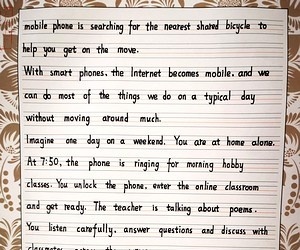 mobile phone is searching for the nearest shared bicycle to
help you get on the move.
With smart phones, the Internet becomes mobile, and we
can do most of the things we do on a typical day
without moving around much.
Imagine one day on a weekend. You are at home alone.
At 7:50, the phone is ringing for morning hobby
classes. You unlock the phone, enter the online classroom
and get ready. The teacher is talking about poems.
You listen carefully, answer questions and discuss with